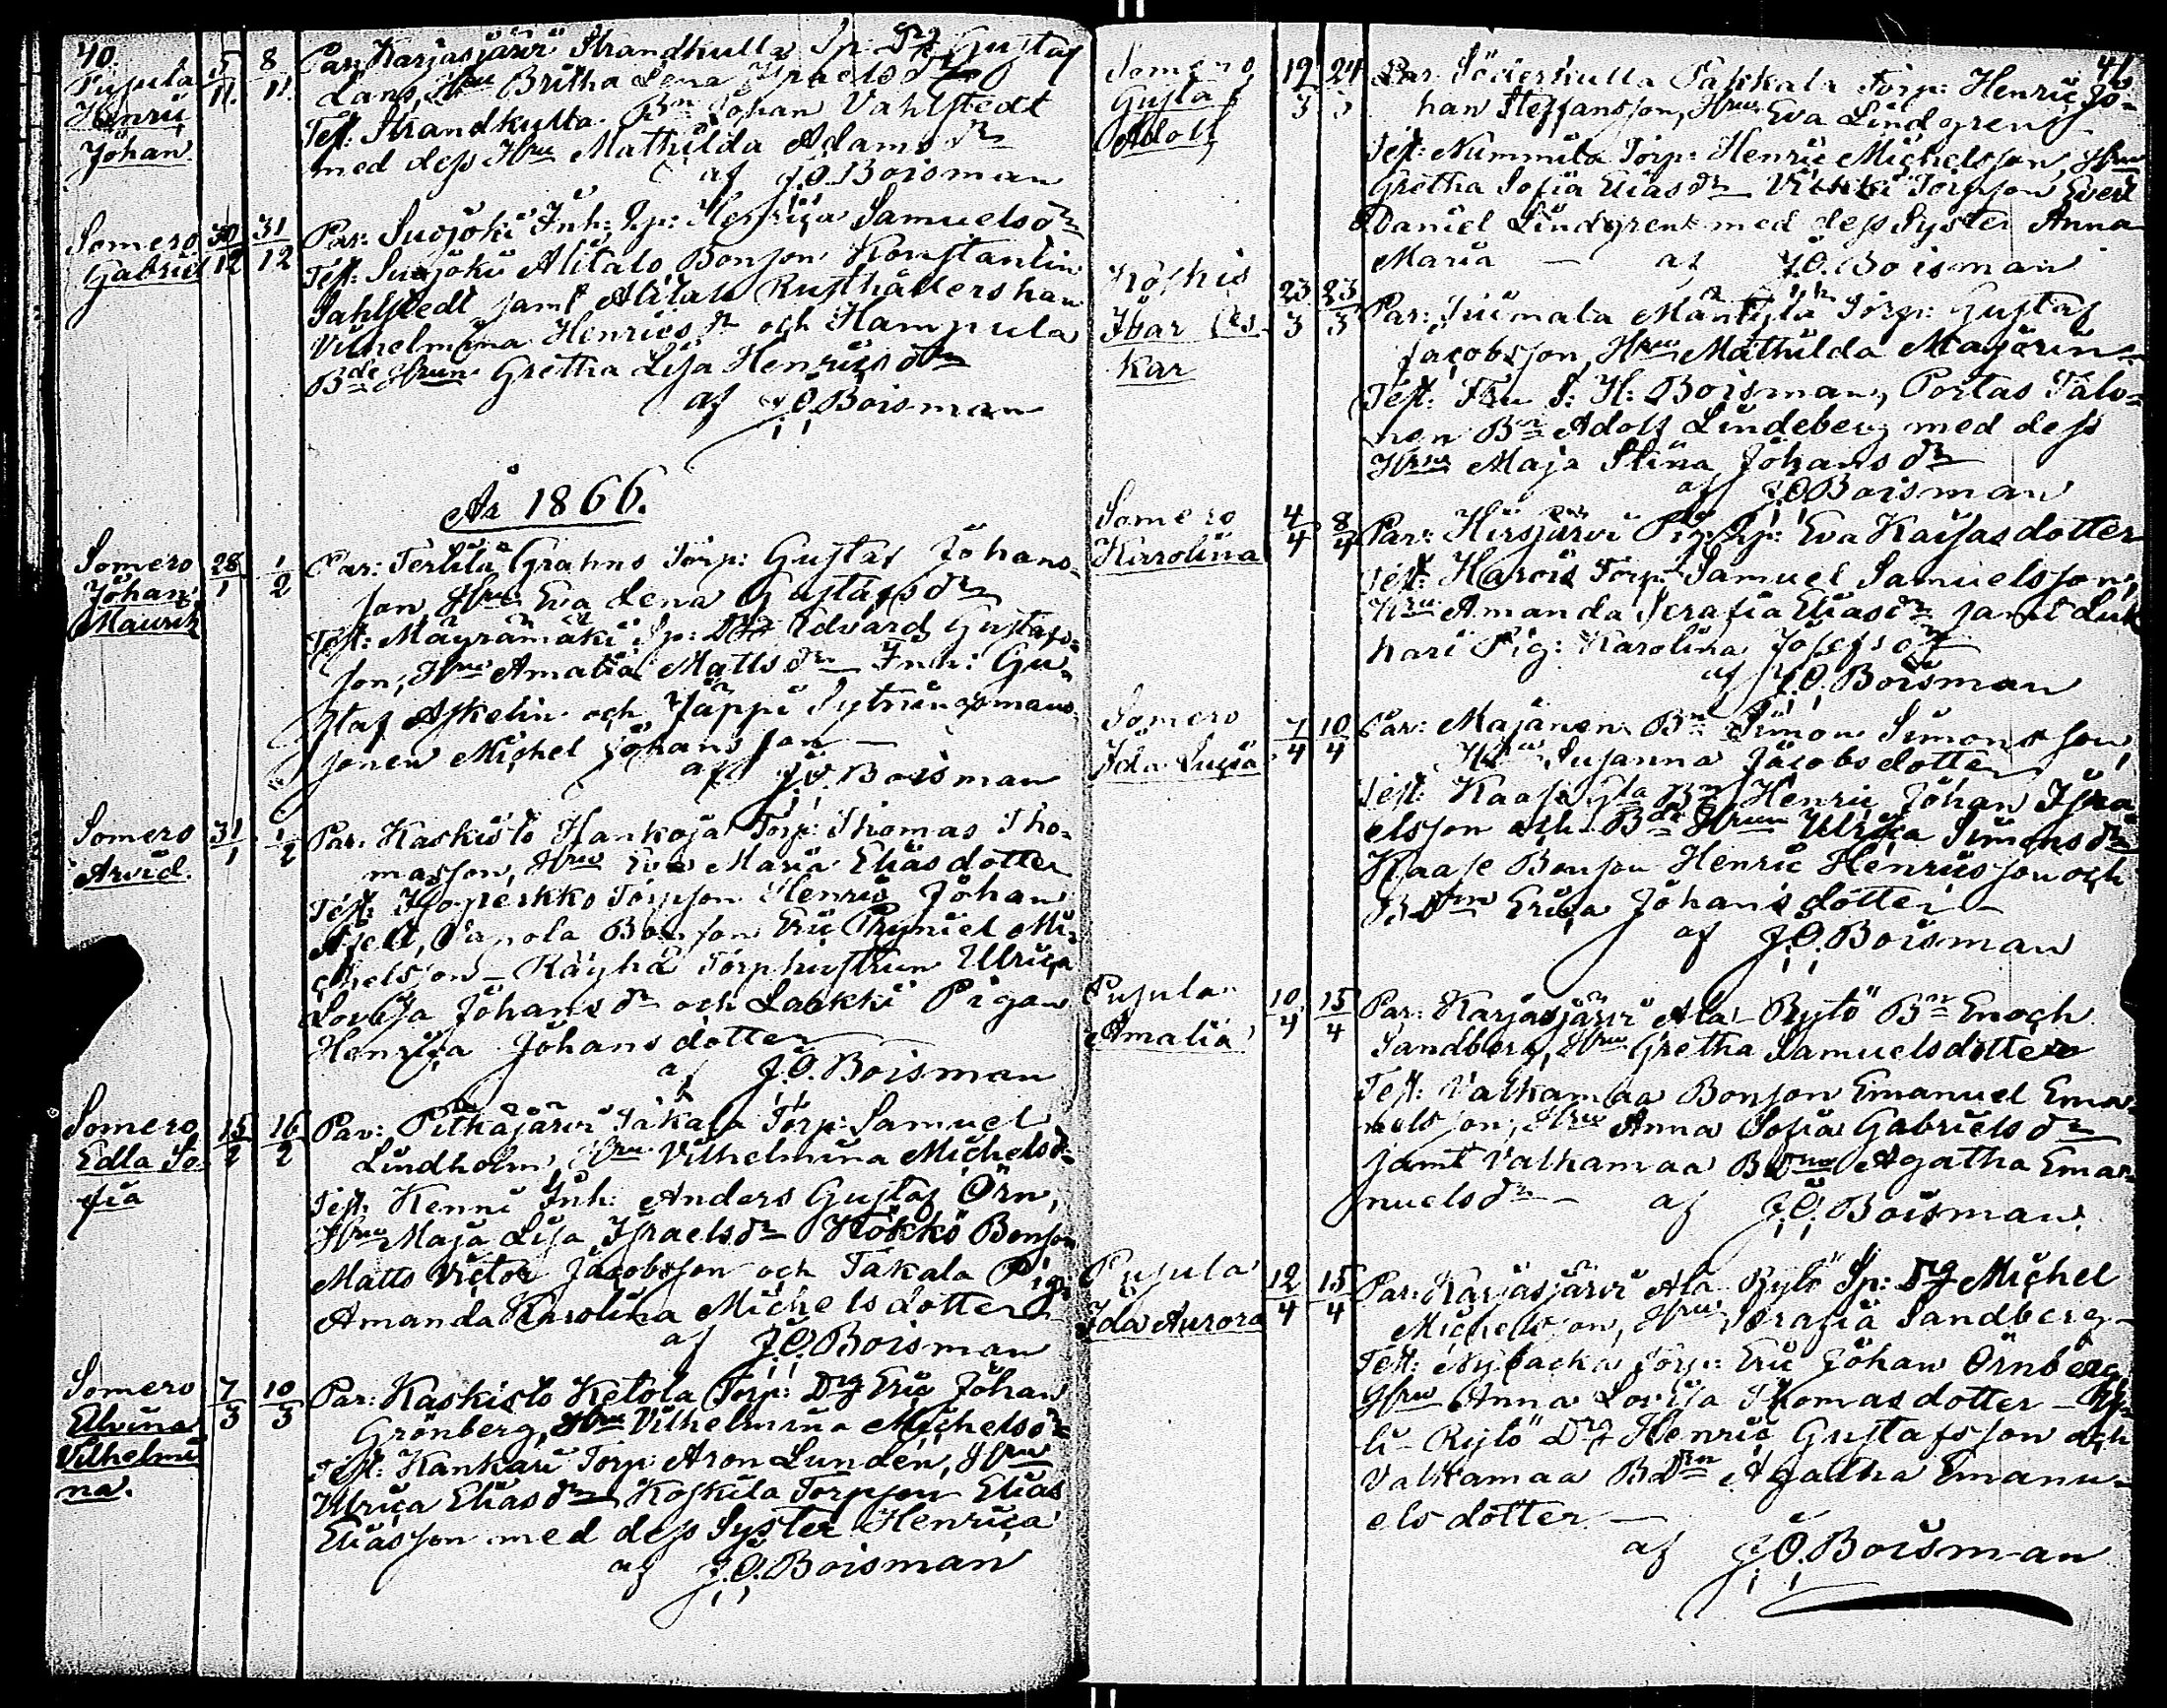 40.
Pujula 5/11. 8/11. Par: Karjasjärvi Strandkulla Sp: Dg Gustaf
Henric Lans, Hru Britha Lena Israelsdr
Johan Test: Strandkulla Bn Johan Vahlstedt
med dess Hru Mathilda Adamsdr
af J.O. Boisman
Somero 30/12 31/12 Par: Suojoki Inh: Pp: Henrica Samuelsdr
Gabriel Test: Suojoki Alitalo Bonson Konstantin
Sahlstedt samt Alitalo Rusthållershan
Vilhelmina Henricsdr och Hampula
Bde Hrun Gretha Lisa Henricsdr
af J.O. Boisman
År 1866.
Somero 28/1 1/2 Par: Terttilä Grahns Torp: Gustaf Johans-
Johan son, Hru Eva Lena Gustafsdr
Mauritz Test: Mäyrämäki Sp: Dg Edvard Gustafs-
son, Hru Amalia Mattsdr Inh: Gu-
staf Askelin och Jäppi Sytningsmans
sonen Michel Johansson —
af J.O. Boisman
Somero 31/1 1/2 Par: Kaskisto Hankoja Torp: Thomas Tho-
Arvid. masson, Hru Eva Maria Eliasdotter
Test: Torpson Henric Johan
Bonson Eric Mi-
chelsson — Räyhä Torphustrun Ulrica
Lovisa Johansdr och Laakki Pigan
Henrica Johansdotter
af J.O. Boisman
Somero 15/2 16/2 Par: Pitkäjärvi Takala Torp: Samuel
Edla So- Lindholm, Hru Vilhelmina Michelsdr
fia Test: Kenni Inh: Anders Gustaf Örn,
Hru Maja Lisa Israelsdr Hökkö Bonson
Matts Victor Jacobsson och Takala Pig:
Amanda Karolina Michelsdotter
af J.O. Boisman
Somero 7/3 10/3 Par: Kaskisto Ketola Torp: Dg Eric Johan
Elvina Grönberg, Hru Vilhelmina Michelsdr
Vilhelmi Test: Kankari Torp: Aron Lundén, Hru
na. Ulrica Eliasdr Koskila Torpson Elias
Eliasson med dess Syster Henrica
af J.O. Boisman
41
Somero 19/3 24/3 Par: Söderkulla Pakkala Torp: Henric Jo-
Gustaf han Steffansson, Hru Eva Lindgren
Adolf Test: Nummila Torp: Henric Michelsson, Hru
Gretha Sofia Eliasdr Torpson Evert
Daniel Lindgren med dess Syster Anna
Maria — af J.O. Boisman
Koskis 23/3 23/3 Par: Mäntylä Torp: Gustaf
Ivar Os- Jacobsson, Hru Mathilda Majorin
kar Test: Fru S: H: Boisman, Portas Talo-
nen Bn Adolf Lindeberg med dess
Hru Maja Stina Johansdr
af J.O. Boisman
Somero 4/4 8/4 Par: Hirsjärvi Pig: Eva Kaisasdotter
Karolina Test: Harois Torp: Samuel Samuelsson,
Hru Amanda Serafia Eliasdr samt Luk
kari Pig: Karolina Josefsdr
af J.O. Boisman
Somero 7/4 10/4 Par: Majanen Bn Simon Simonsson,
Ida Lucia Hru Susanna Jacobsdotter
Test: Kaase Bn Henric Johan Isra
elsson och Bde Hrun Ulrica Simonsdr
Kaase Bonson Henric Henricsson och
BDrn Erica Johansdotter —
af J.O. Boisman
Pujula 10/4 15/4 Par: Karjasjärvi Ala-Rytö Bn Enoch
Amalia Sandberg, Hru Gretha Samuelsdotter
Test: Valkamaa Bonson Emanuel Ema-
nuelsson, Hru Anna Sofia Gabrielsdr
samt Valkamaa BDrn Agatha Ema-
nuelsdr — af J.O. Boisman
Pujula 12/4 15/4 Par: Karjasjärvi Ala Rytö Sp: Dg Michel
Ida Aurora Michelsson, Hru Serafia Sandberg
Test: Nybacka Torp: Eric Johan Örnberg
Hru Anna Lovisa Thomasdotter — Yli-
Rytö Dg Henric Gustafsson och
Valkamaa BDrn Agatha Emanu-
elsdotter —
af J.O. Boisman